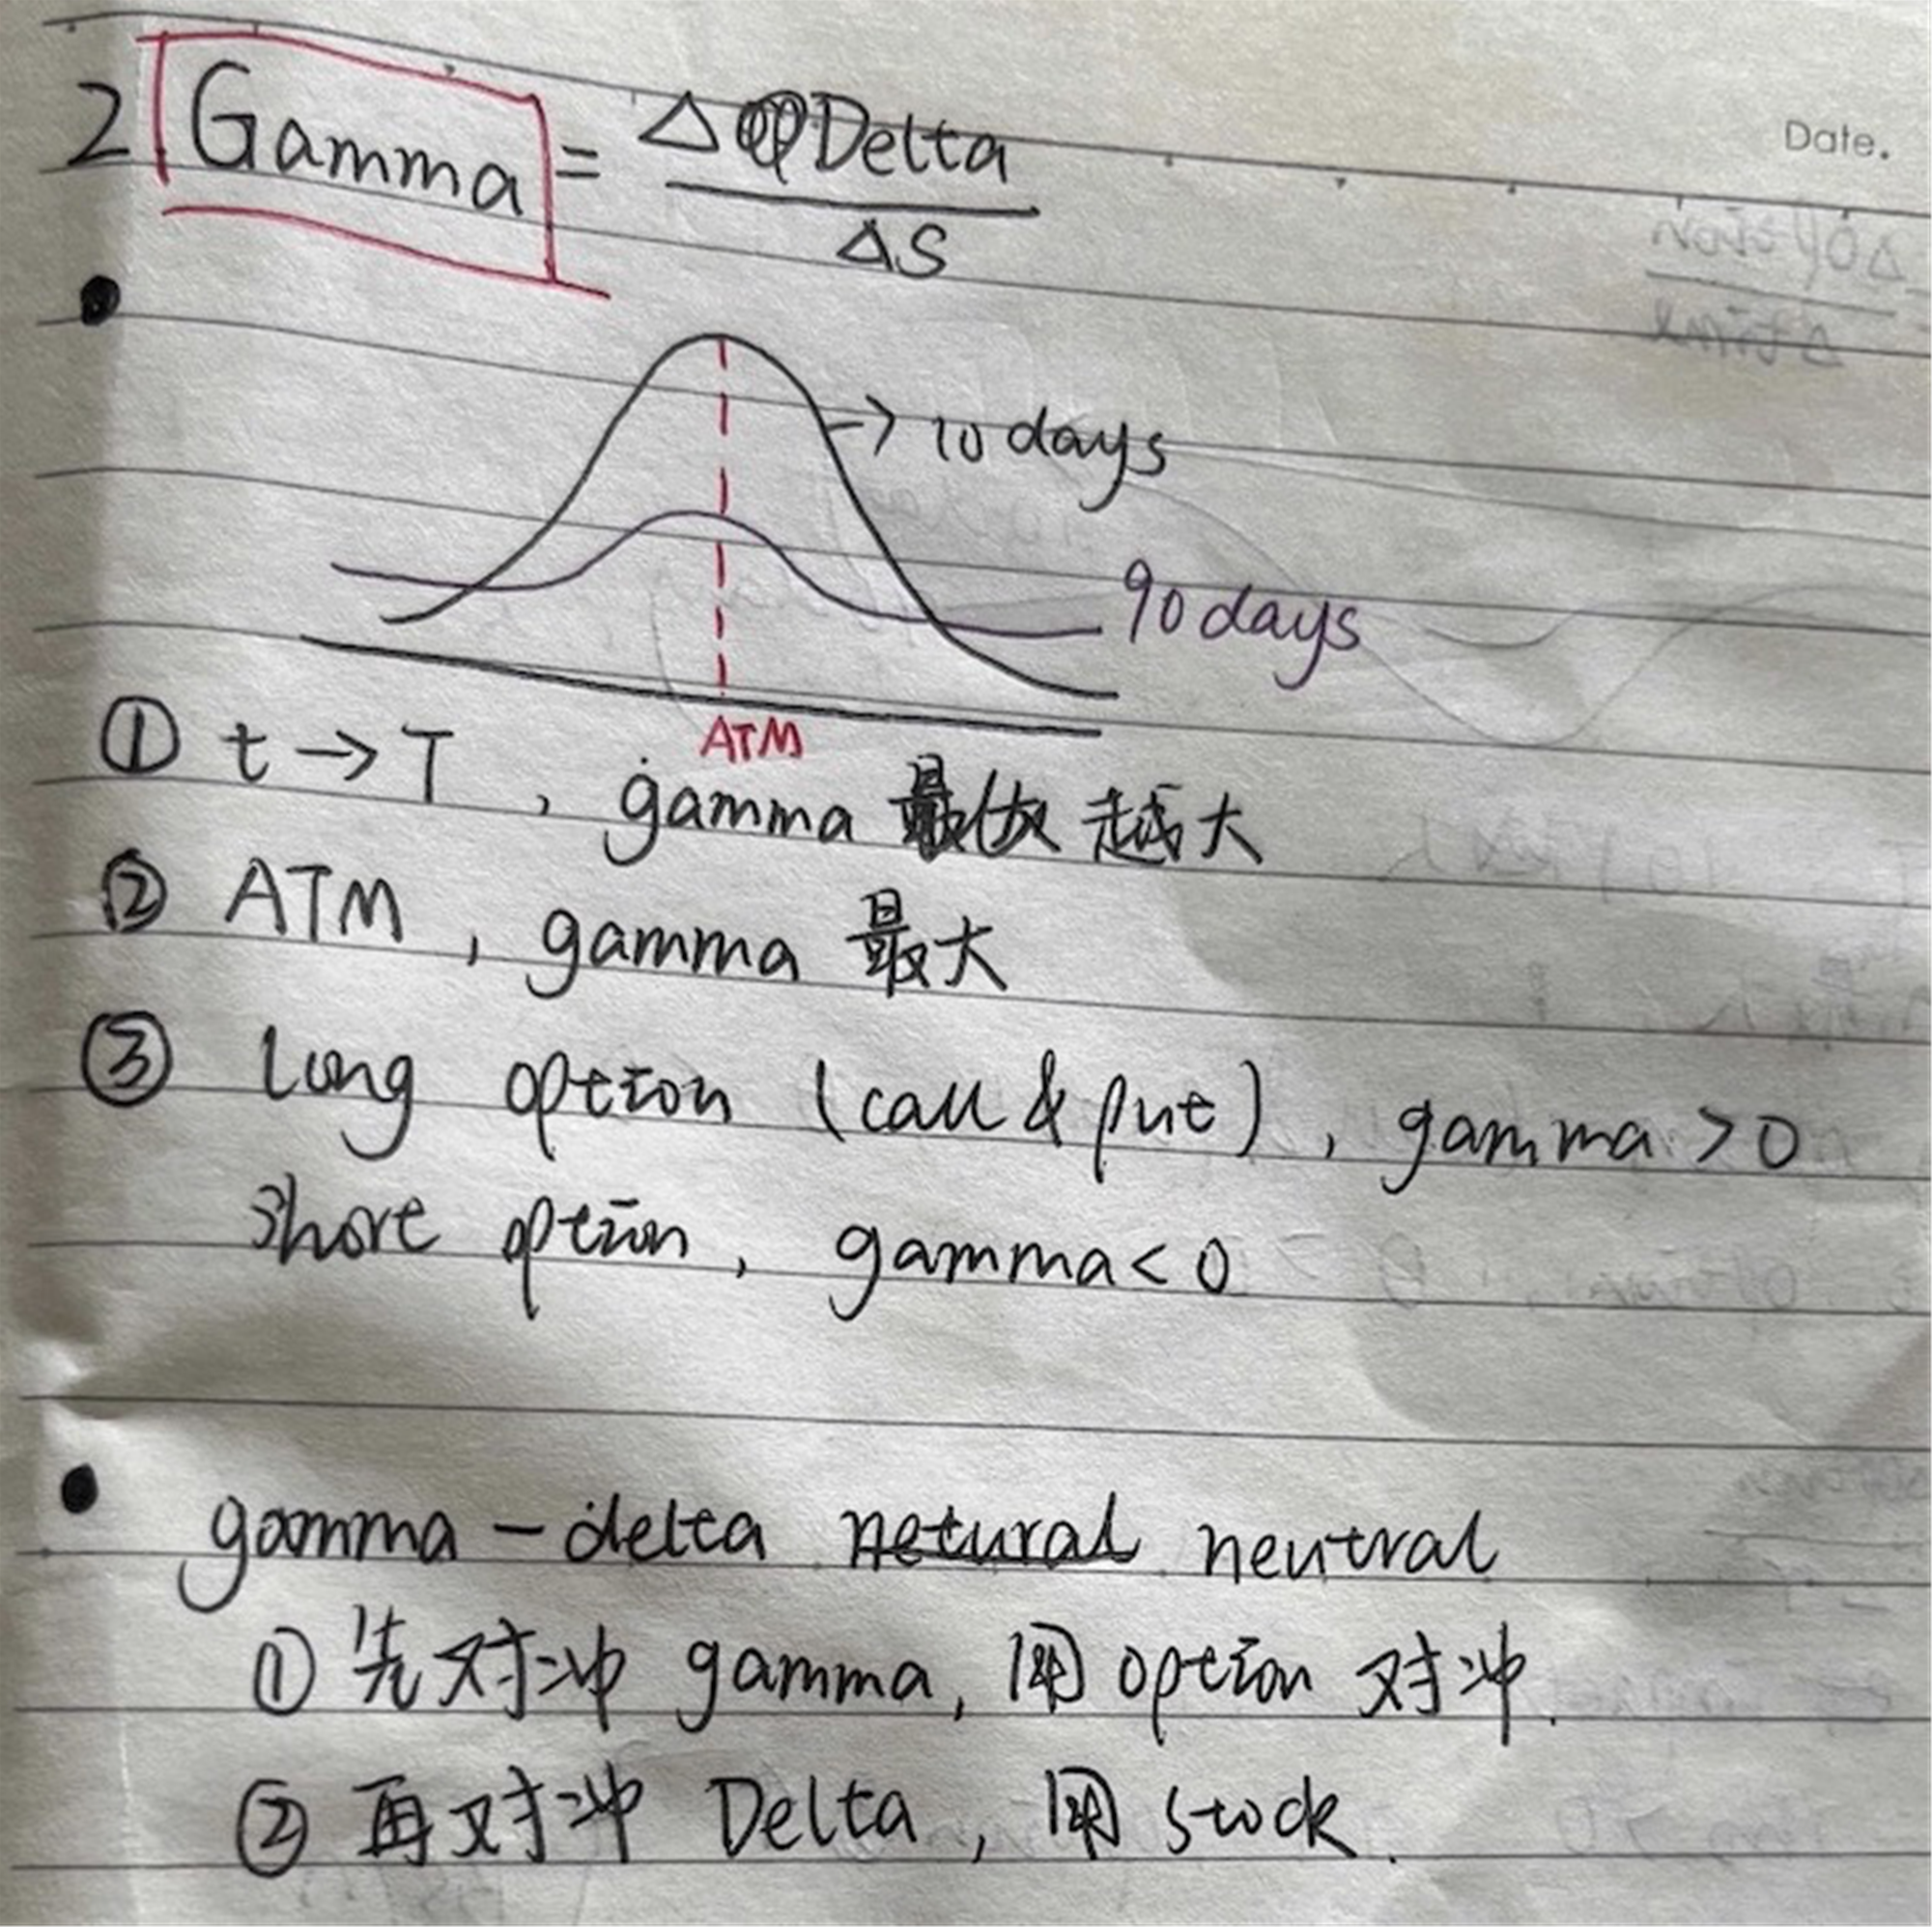 Date.
2 Gamma = ΔDelta / ΔS
10 days
90 days
ATM
① t → T , gamma 越大
② ATM , gamma 最大
③ long option (call & put) , gamma > 0
short option , gamma < 0
gamma - delta netural neutral
① 先对冲 gamma, 用 option 对冲.
② 再对冲 Delta, 用 stock.